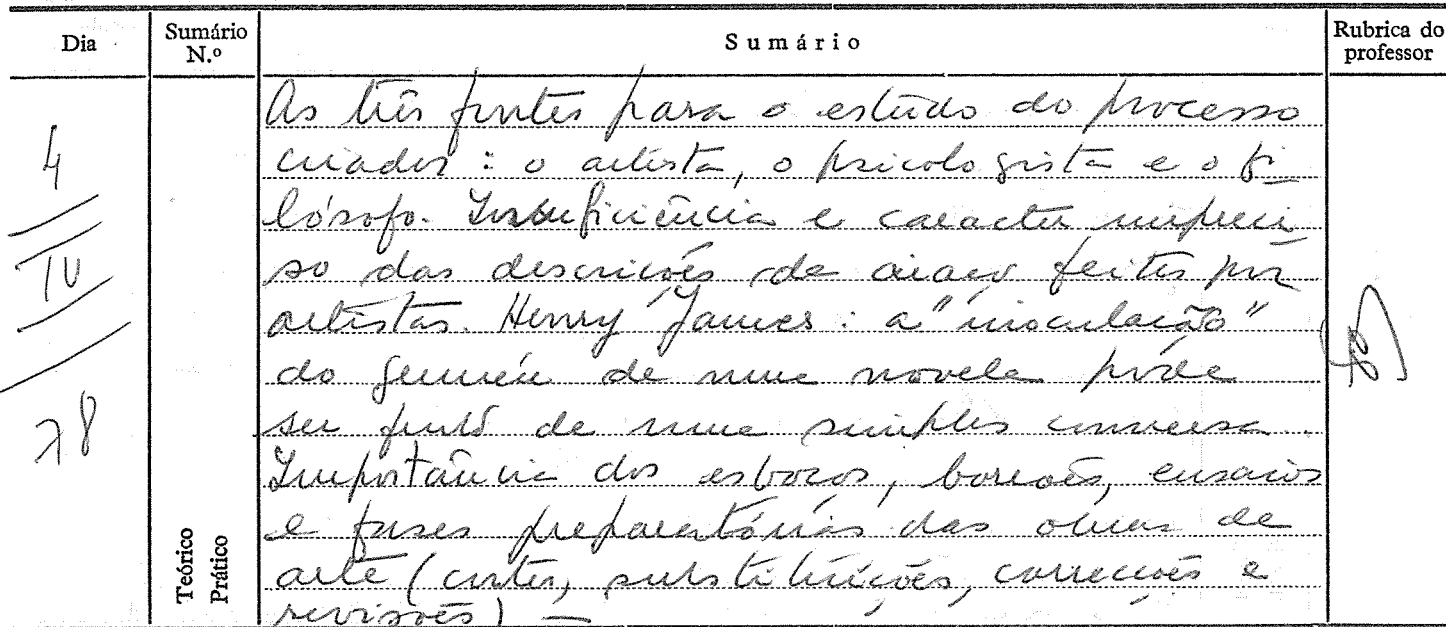 Dia
Sumário N.º
Sumário
Rubrica do professor
4
IV
78
Teórico
Prático
As três fontes para o estudo do processo
criador: o artista, o psicologista e o fi-
lósofo. Insuficiência e caracter impreci-
so das descrições de criação feitas por
artistas. Henry James: a "inoculação"
do germén de uma novela póde
ser fruto de uma simples conversa.
Importância dos esboços, borrões, ensaios
e fases preparatórias das obras de
arte (cortes, substituições, correcções e
revisões) —